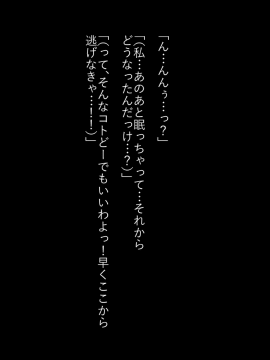 「ん…んんぅ…っ？」
「（私…あのあと眠っちゃって…それから
どうなったんだっけ…？）」
「（って、そんなコトどーでもいいわよっ！早くここから
逃げなきゃ…！！）」